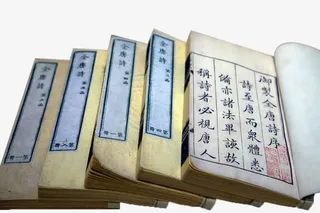 御製全唐詩序
詩至唐而眾體悉
備亦諸法畢該故
稱詩者必視唐人
全唐詩
全唐詩
全唐詩
全唐詩